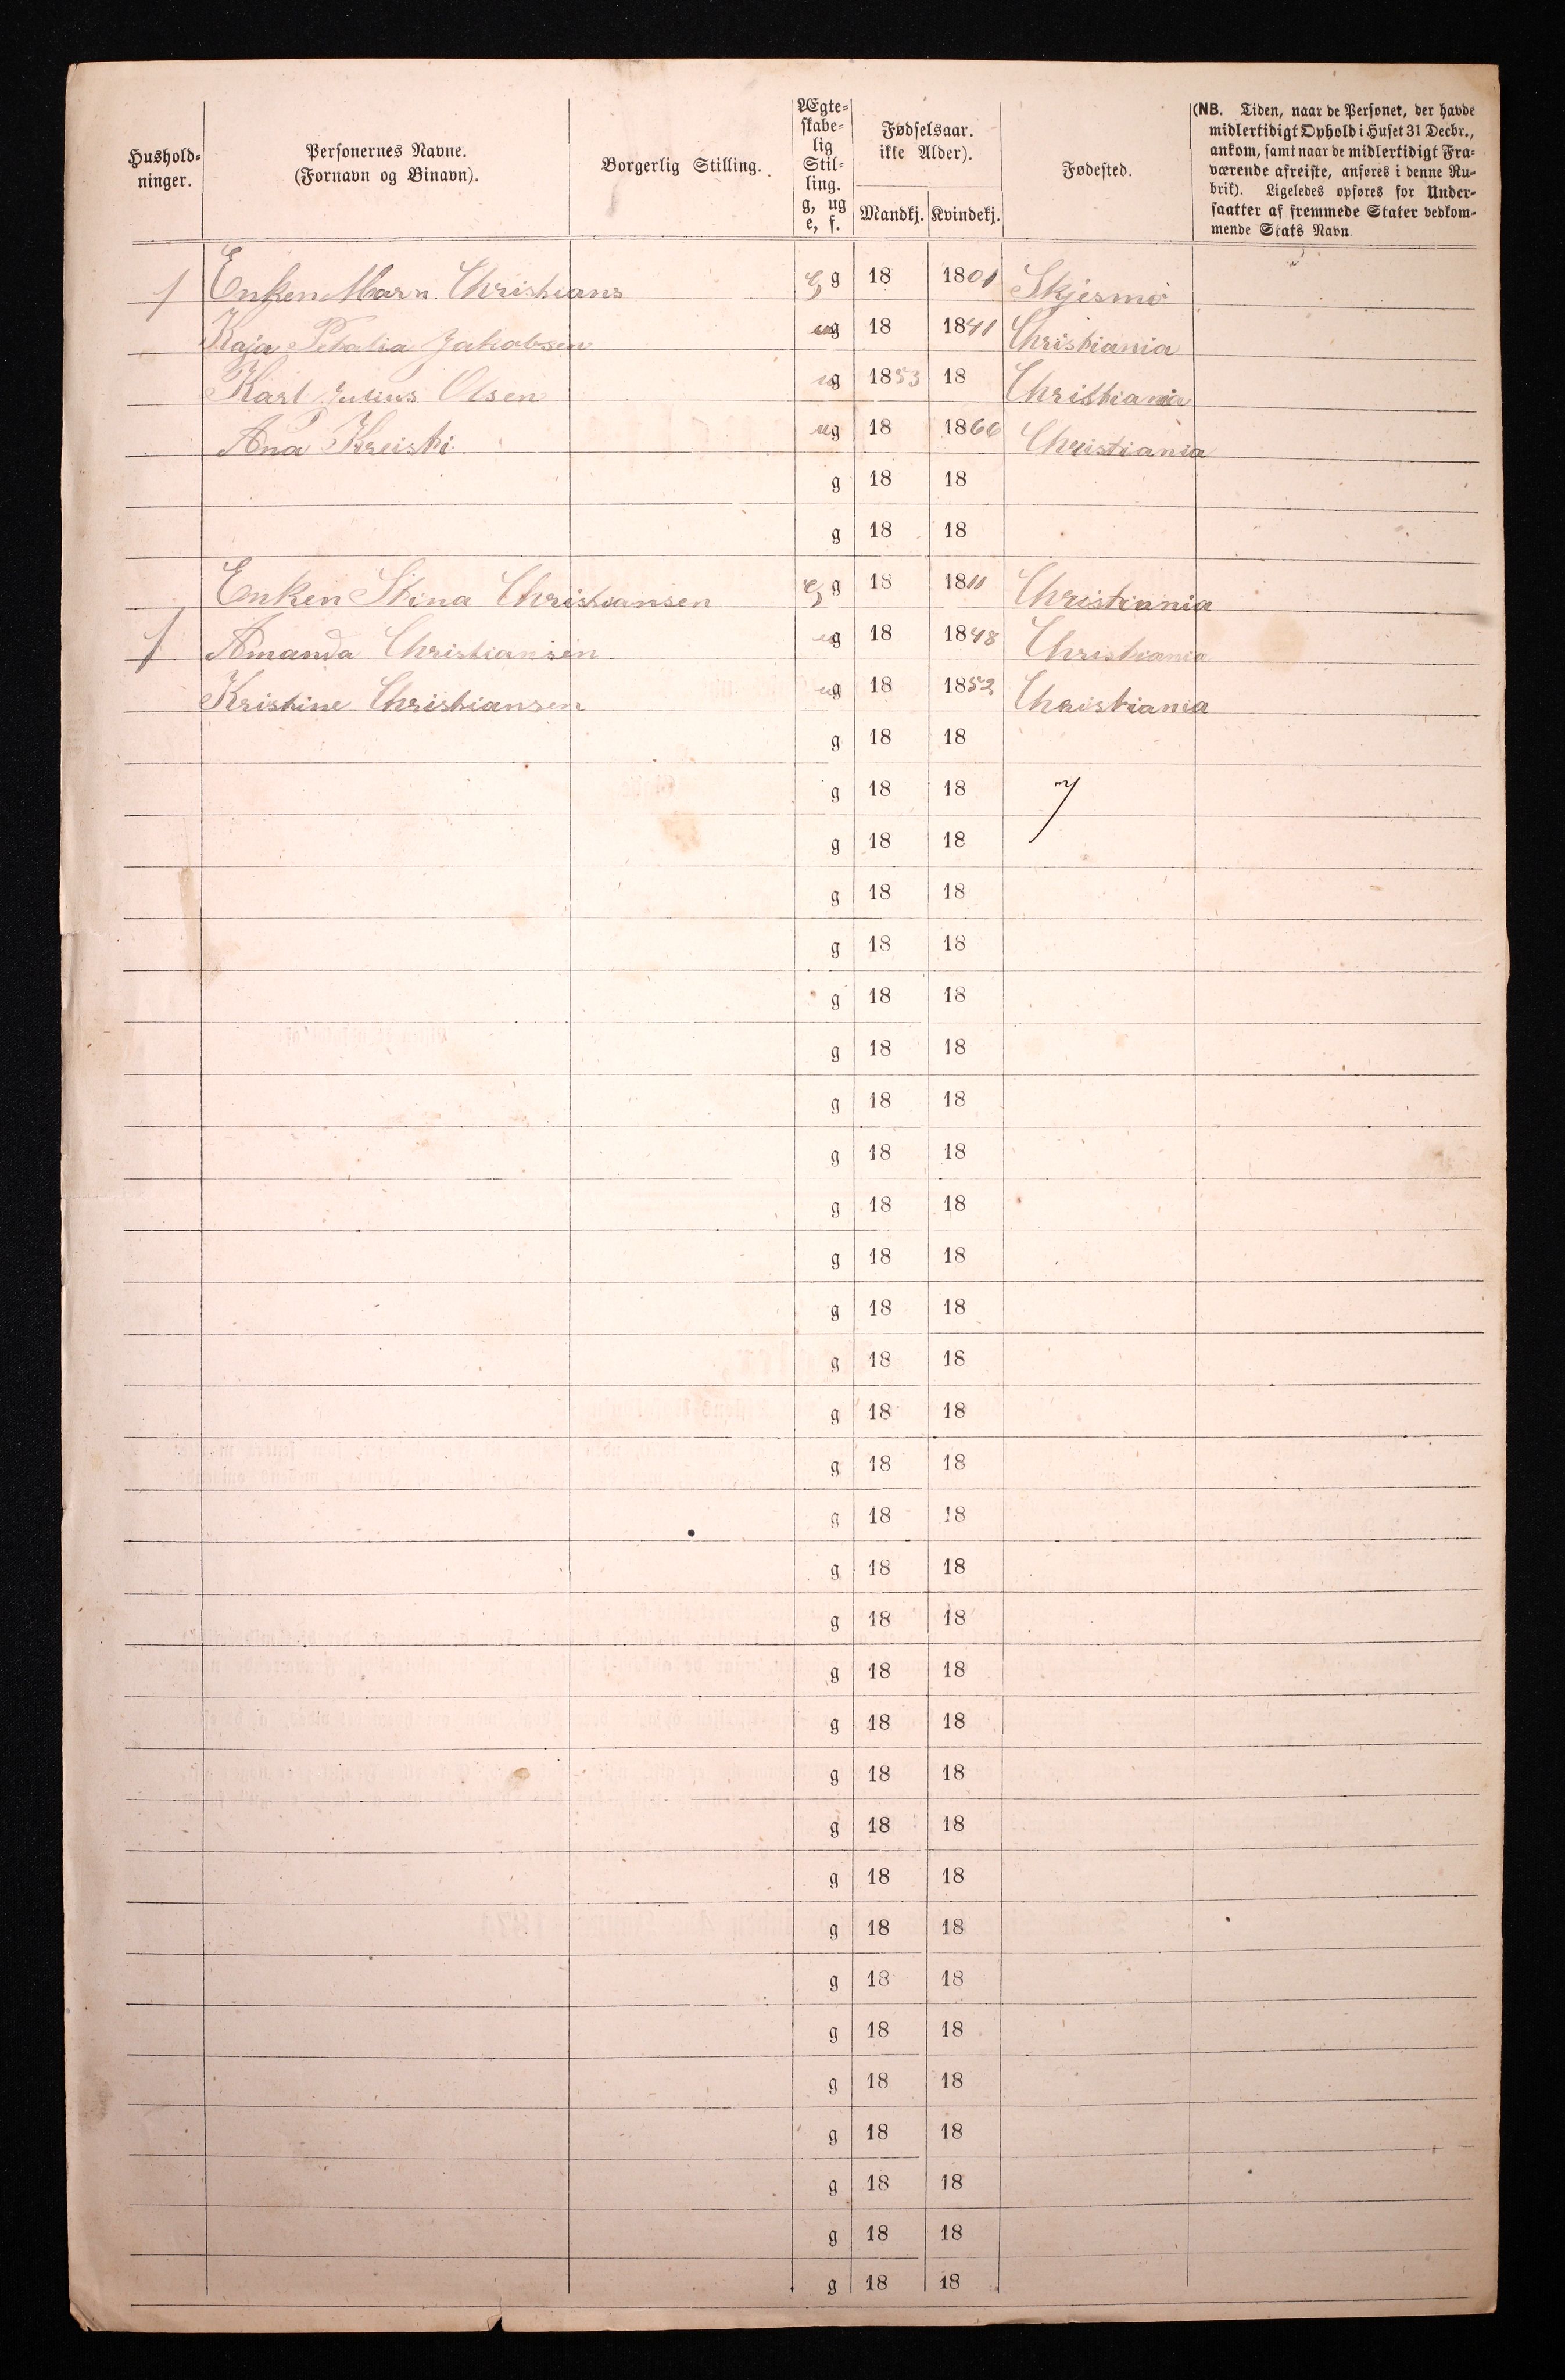 Hushold-
ninger.
Personernes Navne.
(Fornavn og Binavn).
Borgerlig Stilling.
Ægte-
skabe-
lig
Stil-
ling.
g, ug
e, f.
Fødselsaar.
ikke Alder).
Mandkj. Kvindekj.
Fødested.
(NB. Tiden, naar de Personer, der havde
midlertidigt Ophold i Huset 31 Decbr.,
ankom, samt naar de midlertidigt Fra-
værende afreiste, anføres i denne Ru-
brik). Ligeledes opføres for Under-
saatter af fremmede Stater vedkom-
mende Stats Navn
1 Enken Marn Christians e g 18 1801 Skjesmo
Kaja Petalia Jakobsen ug 18 1841 Christiania
Karl Julius Olsen ug 1853 18 Christiania
Ana Kreisti ug 18 1866 Christiania
g 18 18
g 18 18
Enken Stina Christiansen e g 18 1811 Christiania
1 Amanda Christiansen ug 18 1848 Christiania
Kristine Christiansen ug 18 1852 Christiania
g 18 18
g 18 18 7
g 18 18
g 18 18
g 18 18
g 18 18
g 18 18
g 18 18
g 18 18
g 18 18
g 18 18
g 18 18
g 18 18
g 18 18
g 18 18
g 18 18
g 18 18
g 18 18
g 18 18
g 18 18
g 18 18
g 18 18
g 18 18
g 18 18
g 18 18
g 18 18
g 18 18
g 18 18
g 18 18
g 18 18
g 18 18